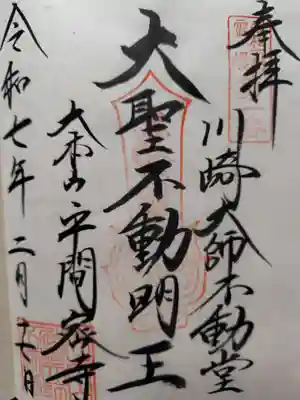 奉拝
川崎大師不動堂
大聖不動明王
大本山平間寺
令和七年二月十七日